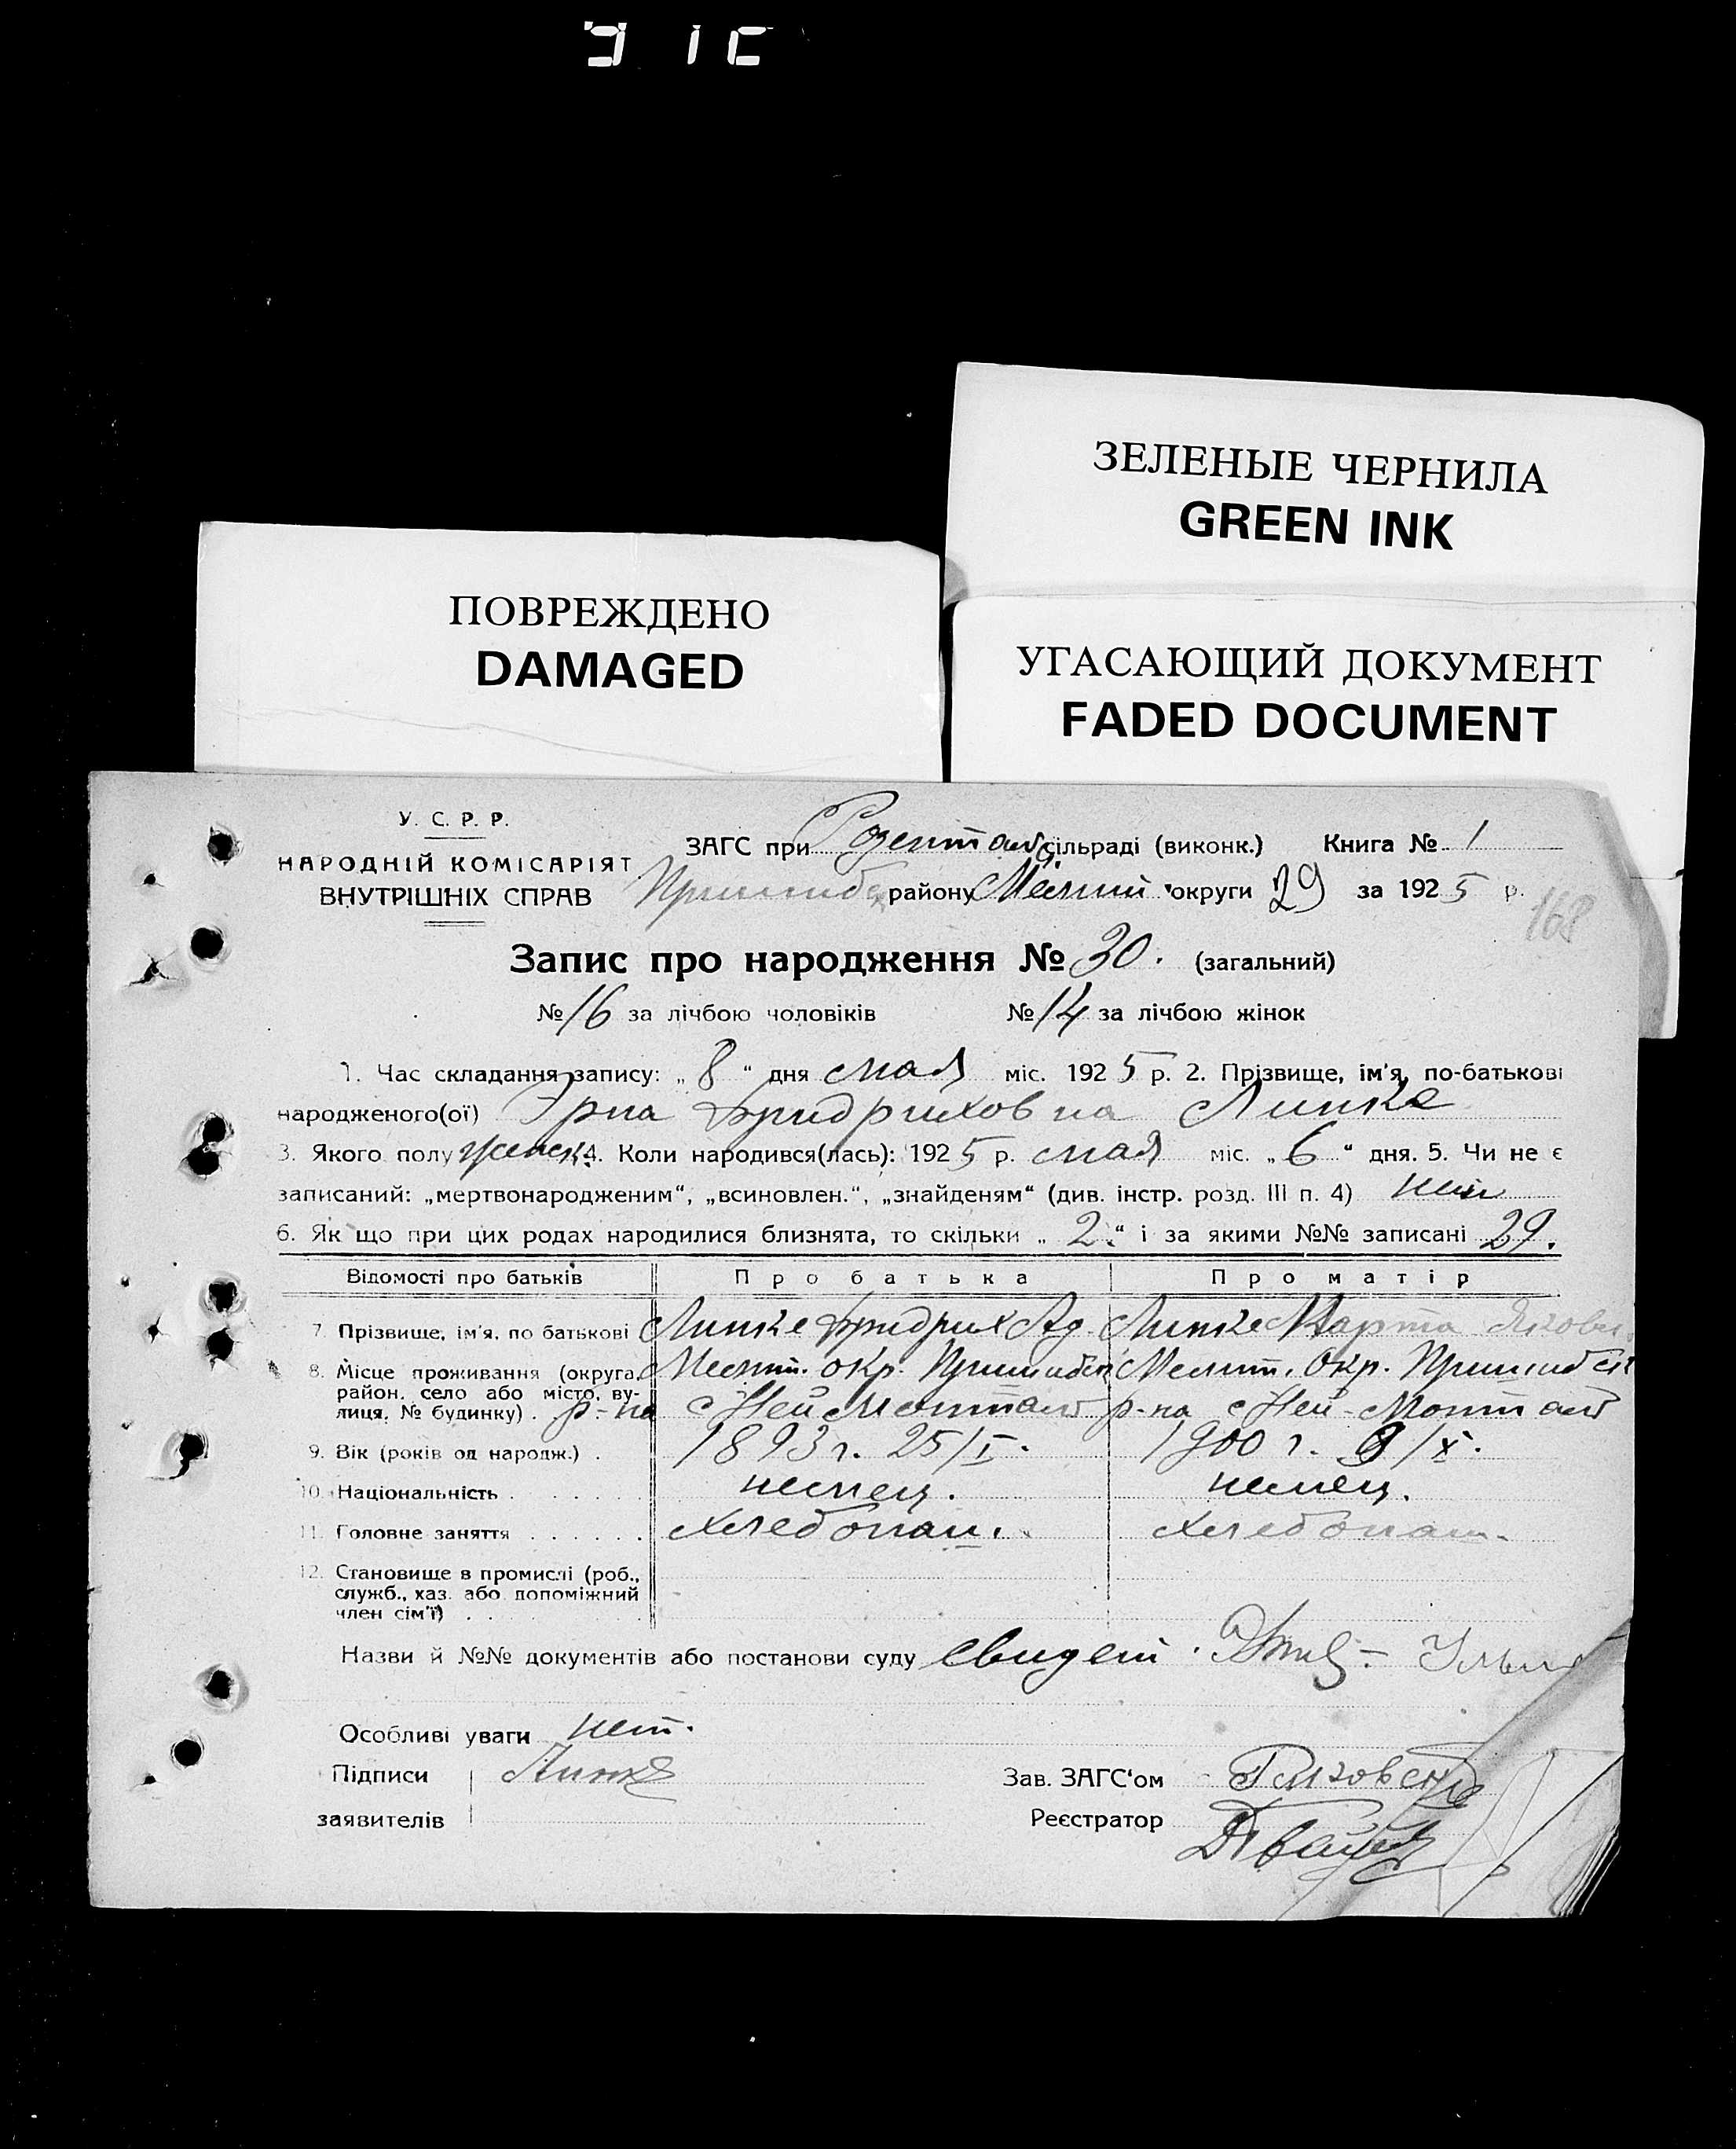 ЗЕЛЕНЫЕ ЧЕРНИЛА
GREEN INK
ПОВРЕЖДЕНО
DAMAGED
УГАСАЮЩИЙ ДОКУМЕНТ
FADED DOCUMENT
У. С. Р. Р.
НАРОДНІЙ КОМІСАРІЯТ
ВНУТРІШНІХ СПРАВ
ЗАГС при Розентал сільраді (виконк.) Книга № 1
Пришиб району Мелит округи 29 за 1925 р.
168
Запис про народження № 30. (загальний)
№ 16 за лічбою чоловіків № 14 за лічбою жінок
1. Час складання запису: „ 8 “ дня мая міс. 1925 р. 2. Прізвище, ім'я, по-батькові
народженого(ої) Эрна Фридриховна Линке
3. Якого полу женск. 4. Коли народився(лась): 1925 р. мая міс. „ 6 “ дня. 5. Чи не є
записаний: „мертвонародженим“, „всиновлен.“, „знайденям“ (див. інстр. розд. III п. 4) нет
6. Як що при цих родах народилися близнята, то скільки „ 2. “ і за якими №№ записані 29.
Відомості про батьків Про батька Про матір
7. Прізвище, ім'я, по батькові Линке Фридрих Ад. Линке Марта Яковл.
8. Місце проживання (округа, Мелит. окр. Пришибск Мелит. Окр. Пришибск
район, село або місто, ву-
лиця, № будинку) . р-на с Ней Монталь р-на с Ней-Монталь
9. Вік (років од народж.) . 1893 г. 25/I. 1900 г. 9/X.
10. Національність . немец. немец.
11. Головне заняття . хлебопаш. хлебопаш.
12. Становище в промислі (роб.,
служб., хаз. або допоміжний
член сім'ї) . .
Назви й №№ документів або постанови суду свидет.
Особливі уваги нет.
Підписи Линке Зав. ЗАГС'ом
заявителів Реєстратор